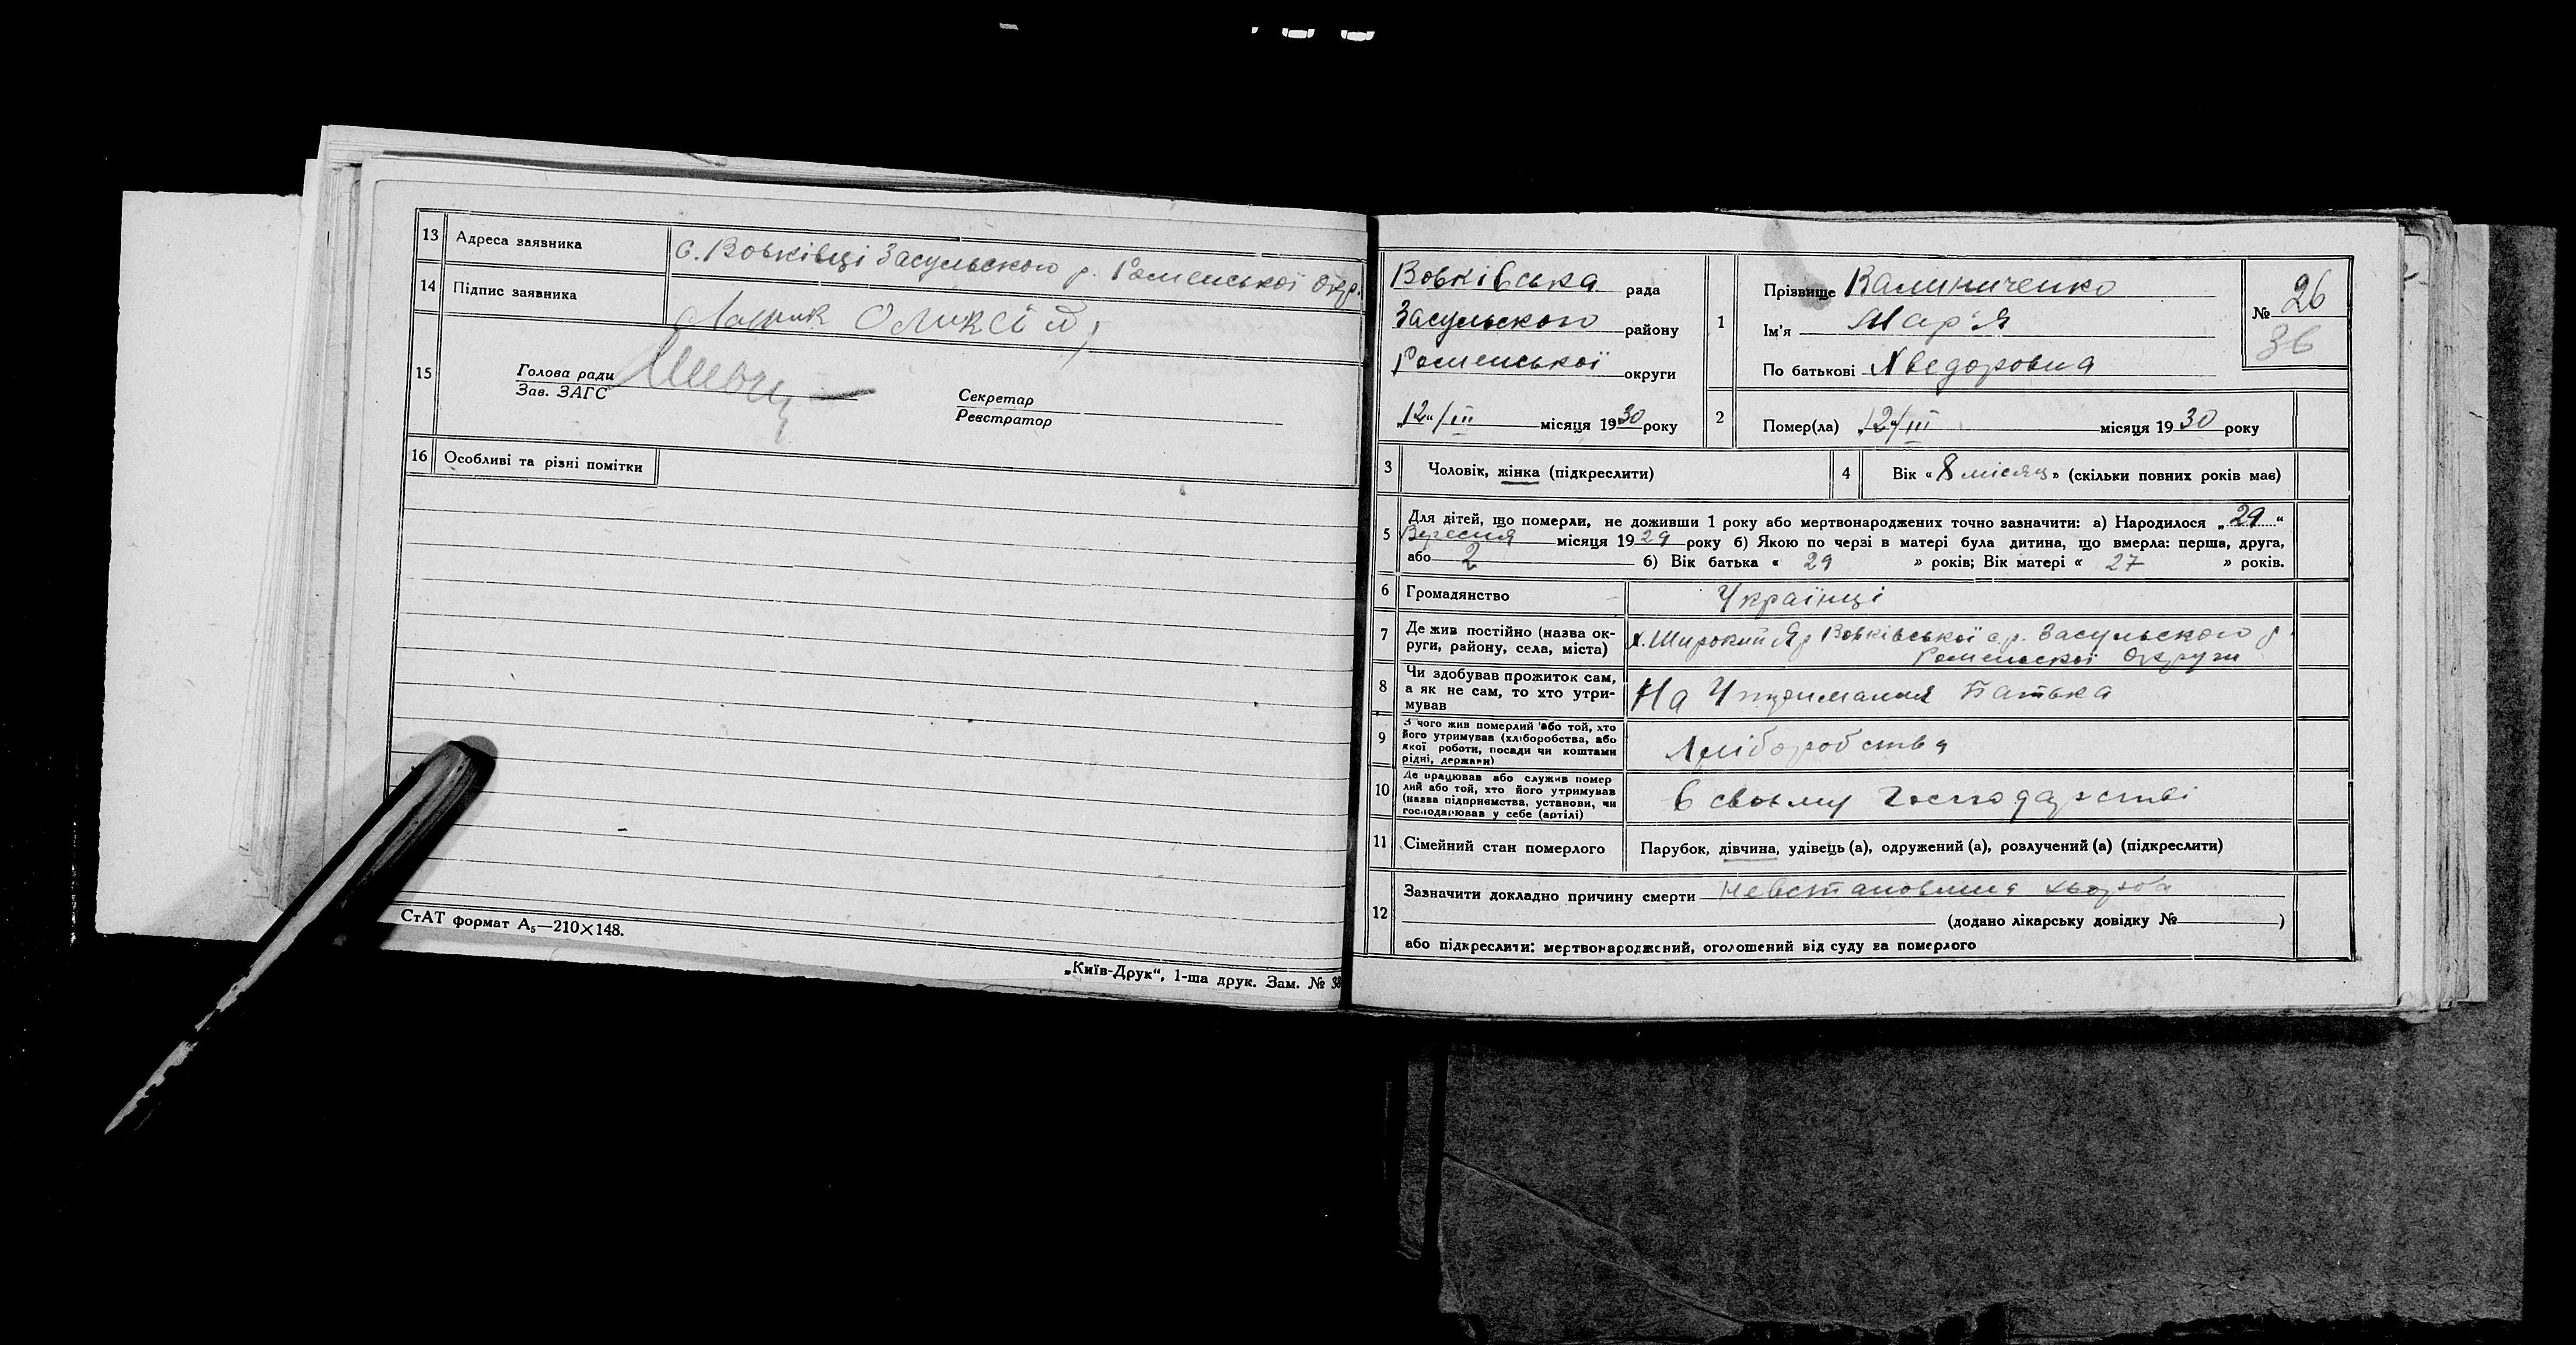 13 Адреса заявника с. Вовківці Засульского р. Роменської Окр.
14 Підпис заявника Оликсій
15 Голова ради
Зав. ЗАГС
Секретар
Реєстратор
16 Особливі та різні помітки
СтАТ формат А₅—210×148.
„Київ-Друк“, 1-ша друк. Зам. № 38
Вовківська рада
Засульского району
Роменської округи
„12“/III місяця 1930 року
1 Прізвище Калиниченко
Ім'я Мар'я
По батькові Хведоровна
№ 26
36
2 Помер(ла) „12“/III місяця 1930 року
3 Чоловік, жінка (підкреслити)
4 Вік «8 місяц» (скільки повних років має)
5 Для дітей, що померли, не доживши 1 року або мертвонароджених точно зазначити: а) Народилося „29“
Вересня місяця 1929 року б) Якою по черзі в матері була дитина, що вмерла: перша, друга,
або 2 б) Вік батька « 29 » років; Вік матері « 27 » років.
6 Громадянство Українці
7 Де жив постійно (назва ок-
руги, району, села, міста) х. Широкий Яр Вовківської с.р. Засульского р.
Роменьскої Округи
8 Чи здобував прожиток сам,
а як не сам, то хто утри-
мував На Утримання Батька
9 З чого жив померлий або той, хто
його утримував (хліборобства, або
якої роботи, посади чи коштами
рідні, держави) Хліборобства
10 Де працював або служив помер
лий або той, хто його утримував
(назва підприємства, установи, чи
господарював у себе (артілі) В своьму Господарстві
11 Сімейний стан померлого Парубок, дівчина, удівець (а), одружений (а), розлучений (а) (підкреслити)
12 Зазначити докладно причину смерти Невстановлина хвороба
(додано лікарську довідку № )
або підкреслити: мертвонароджений, оголошений від суду за померлого